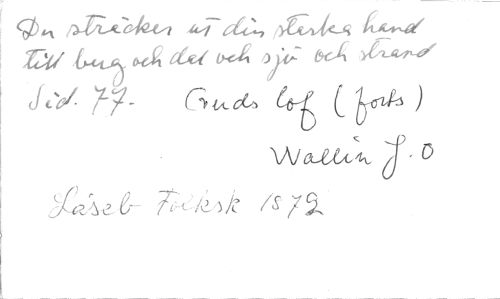 Du sträcker ut din starka hand
till berg och dal och sjö och strand
Sid. 77. Guds lof (forts)
Wallin J. O
Läseb Folksk 1872